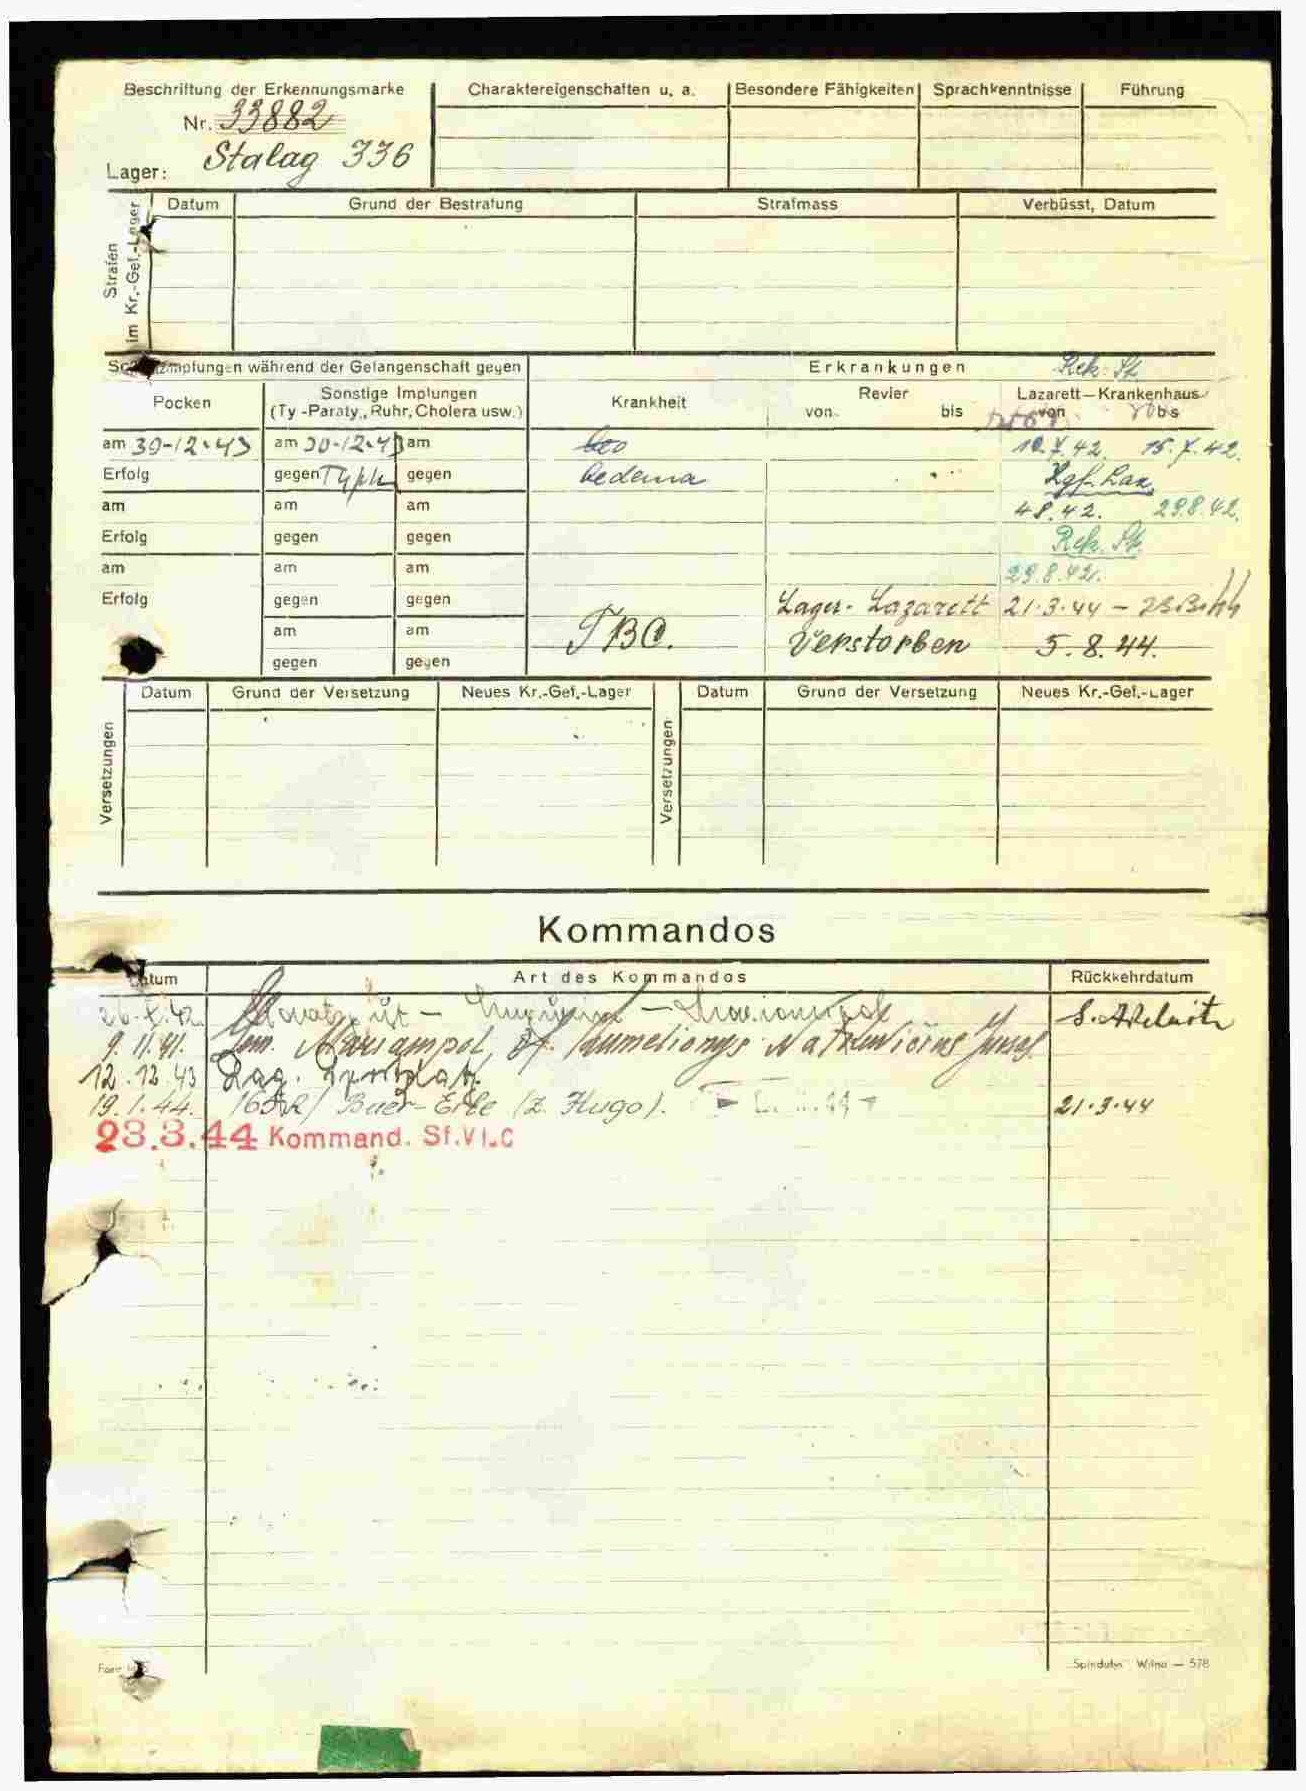 Beschriftung der Erkennungsmarke
Nr. 33882
Lager: Stalag 336
Charaktereigenschaften u. a.
Besondere Fähigkeiten
Sprachkenntnisse
Führung
Strafen im Kr.-Gef.-Lager
Datum
Grund der Bestrafung
Strafmass
Verbüsst, Datum
während der Gefangenschaft gegen
Erkrankungen
Rek. St.
Pocken
Sonstige Impfungen
(Ty.-Paraty., Ruhr, Cholera usw.)
Krankheit
Revier
von bis
Lazarett—Krankenhaus
von bis
am 30-12-43 am 30-12-43 am
10.7.42. 15.7.42.
Erfolg gegen Typh gegen
oedema
Kgf. Laz.
am am am
4.8.42. 29.8.42.
Erfolg gegen gegen
Rek. St.
am am am
29.8.42.
Erfolg gegen gegen
Lager-Lazarett 21.3.44 –
am am
TBC. Verstorben 5.8.44.
gegen gegen
Versetzungen
Datum
Grund der Versetzung
Neues Kr.-Gef.-Lager
Versetzungen
Datum
Grund der Versetzung
Neues Kr.-Gef.-Lager
Kommandos
Art des Kommandos
Rückkehrdatum
Mariampol
12.12.43
19.1.44. Buer-Erle (Z. Hugo). 21.3.44
23.3.44 Kommand. Sf.VI.C
"Spindulys" Wilna — 578